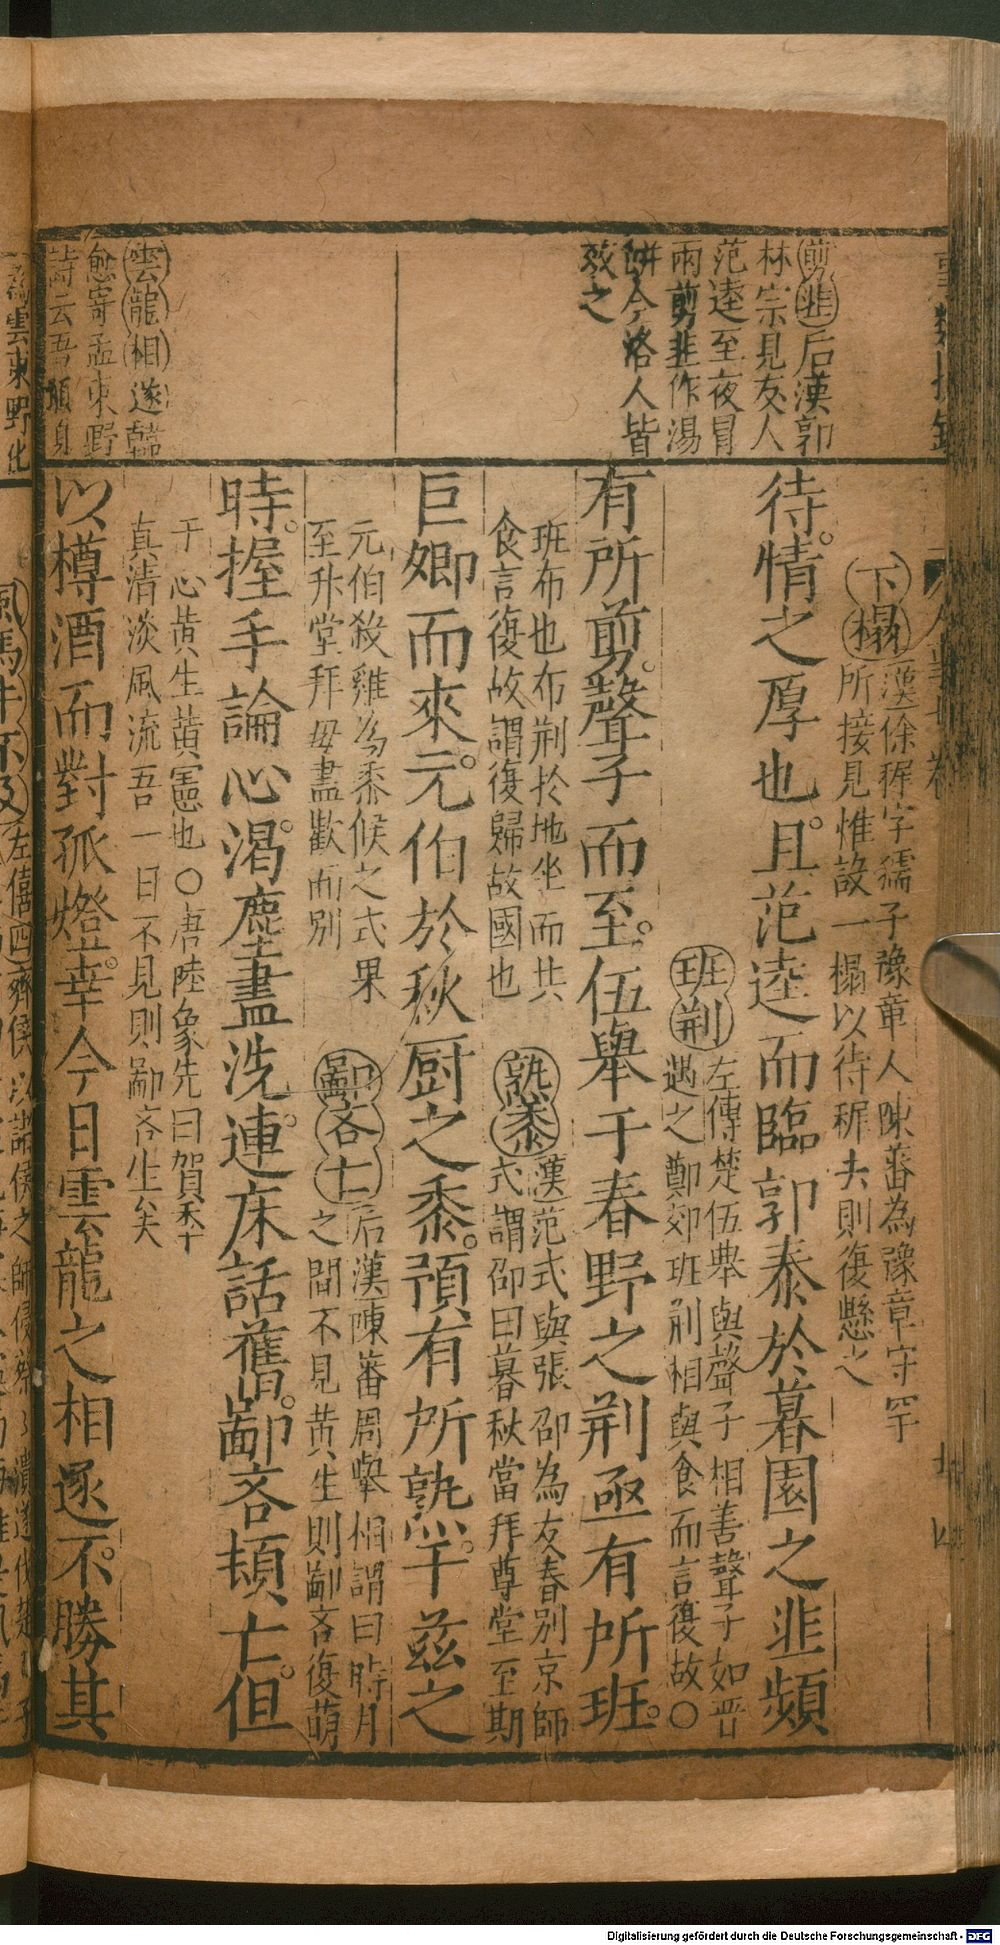 剪韭后漢郭
林宗見友人
范逵至夜冒
雨剪韭作湯
餅今洛人皆
效之
雲龍相逐韓
愈寄孟東野
詩云吾願身
下榻漢徐穉字孺子豫章人陳蕃為豫章守罕
所接見惟設一榻以待穉去則復懸之
待情之厚也且范逵而臨郭泰於暮園之韭頻
班荆左傳楚伍舉與聲子相善聲子如晋
遇之鄭郊班荆相與食而言復故〇
有所剪聲子而至伍舉于春野之荆亟有所班
班布也布荆於地坐而共
食言復故謂復歸故國也
熟黍漢范式與張邵為友春別京師
式謂邵曰暮秋當拜尊堂至期
巨卿而來元伯於秋厨之黍預有所熟于兹之
元伯殺雞為黍候之式果
至升堂拜母盡歡而別
鄙吝亡后漢陳蕃周舉相謂曰時月
之間不見黄生則鄙吝復萌
時握手論心渴塵盡洗連床話舊鄙吝頓亡但
于心黄生黄憲也〇唐陸象先曰賀季
真清淡風流吾一日不見則鄙吝生矣
以樽酒而對孤燈幸今日雲龍之相逐不勝其
為雲東野化
風馬牛不及左僖四齊侯以諸侯之師侵蔡
Digitalisierung gefördert durch die Deutsche Forschungsgemeinschaft - DFG